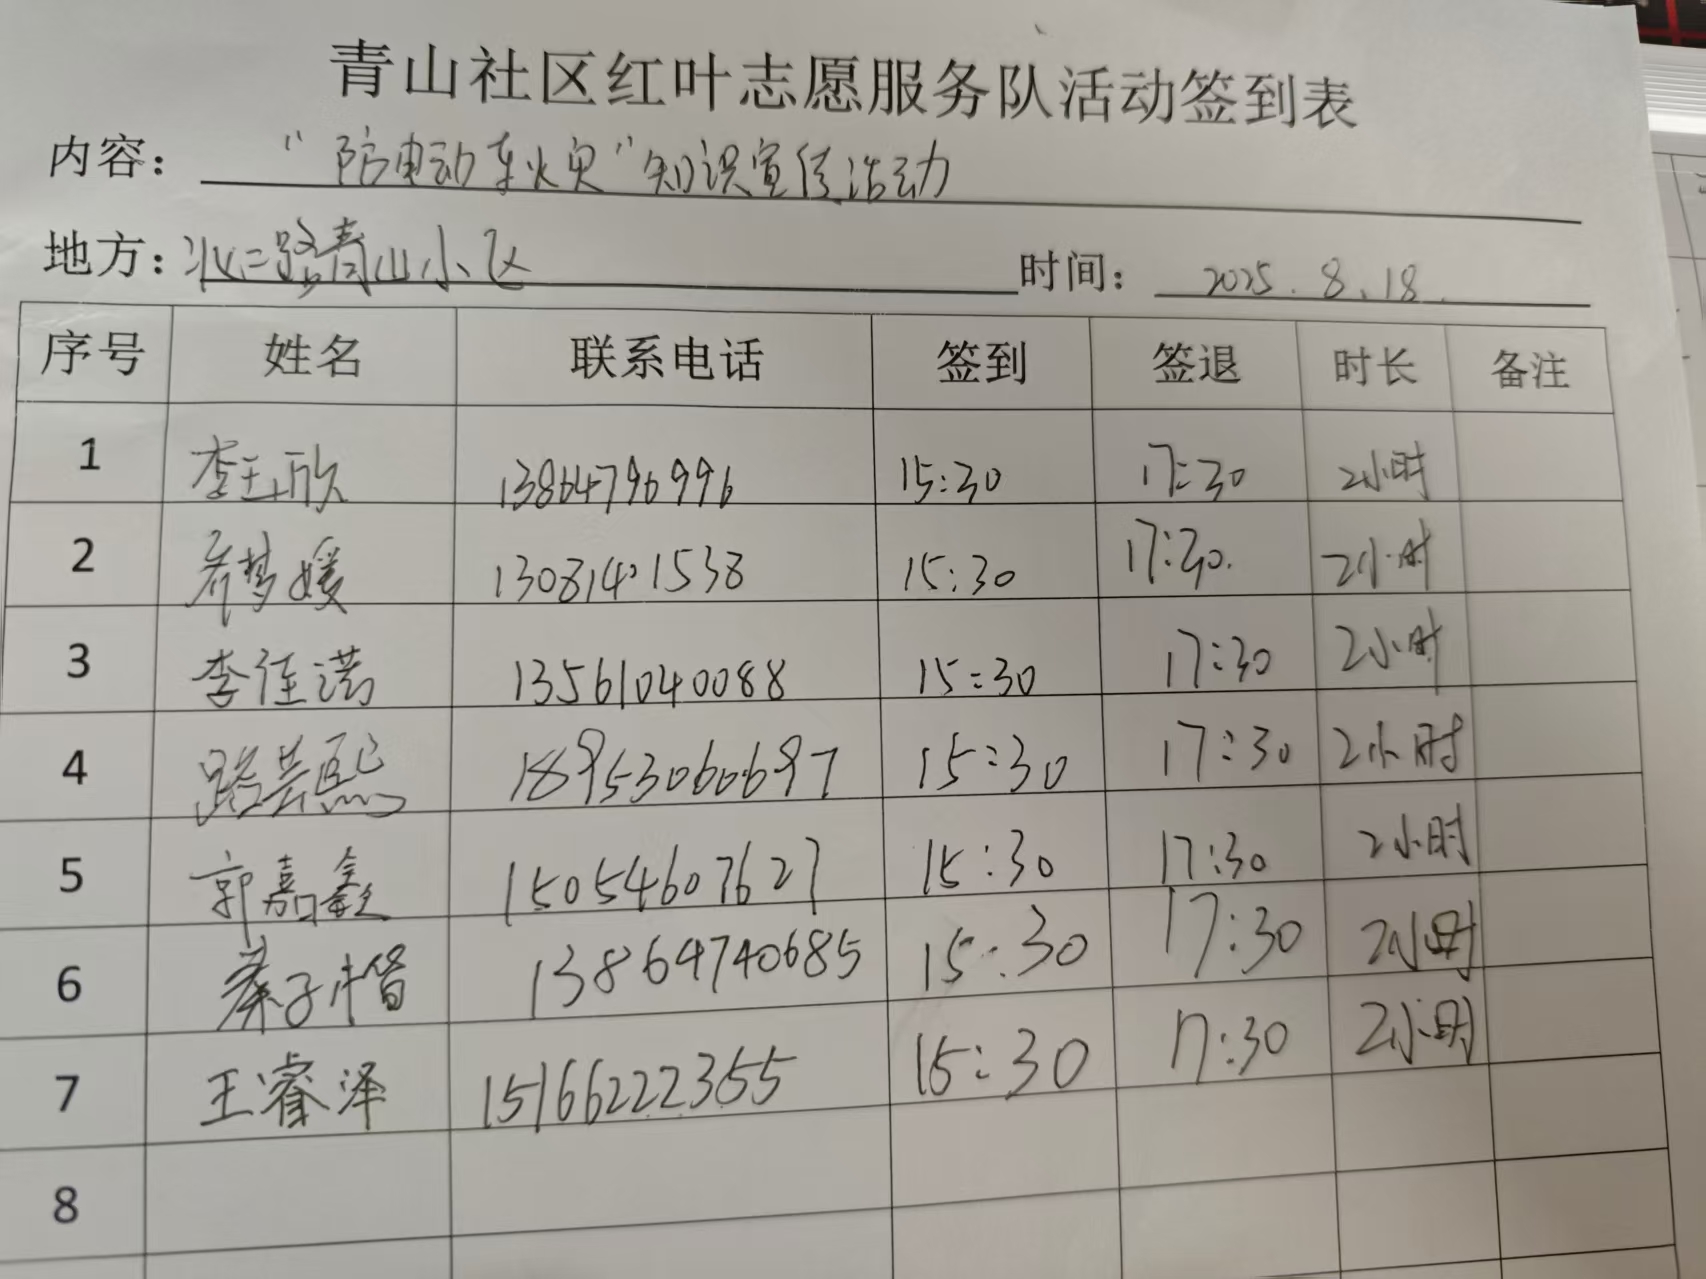 青山社区红叶志愿服务队活动签到表
内容：“防电动车火灾”知识宣传活动
地方：北二路青山小区 时间：2025.8.18.
序号 姓名 联系电话 签到 签退 时长 备注
1 13864796996 15:30 17:30 2小时
2 梦媛 15:30 17:30. 2小时
3 李佳诺 13561040088 15:30 17:30 2小时
4 路芸熙 18953060697 15:30 17:30 2小时
5 郭嘉鑫 15054607627 15:30 17:30 2小时
6 13864740685 15:30 17:30 2小时
7 王睿泽 15166222355 15:30 17:30 2小时
8